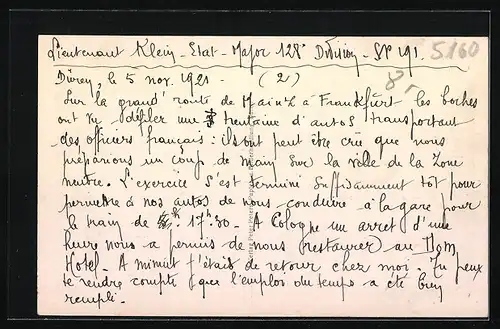 Lieutenant Klein - Etat-Major 128e Division - SP 191.
5160
Düren, le 5 nov. 1921 - (2)
Sur la grand' route de Mainz à Frankfurt les boches
ont vu défiler une trentaine d'autos transportant
des officiers français: ils ont peut être cru que nous
préparions un coup de main sur la ville de la zone
neutre. L'exercice s'est terminé suffisamment tôt pour
permettre à nos autos de nous conduire à la gare pour
le train de 17h30. A Cologne un arrêt d'une
heure nous a permis de nous restaurer au Dom
Hotel. A minuit j'étais de retour chez moi. Tu peux
te rendre compte que l'emploi du temps a été bien
rempli.